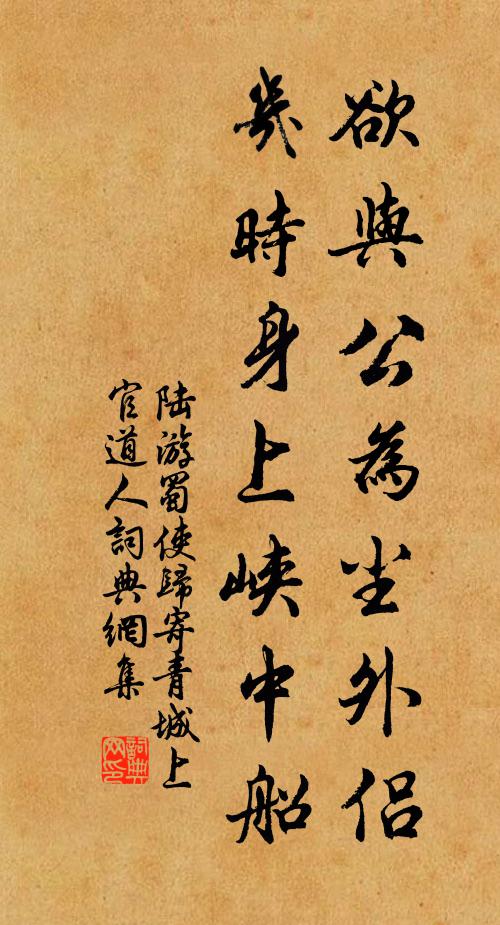 欲與公為尘外侣
幾時身上峽中船
陆游蜀使歸寄青城上
官道人詞典網集
詞典
网印